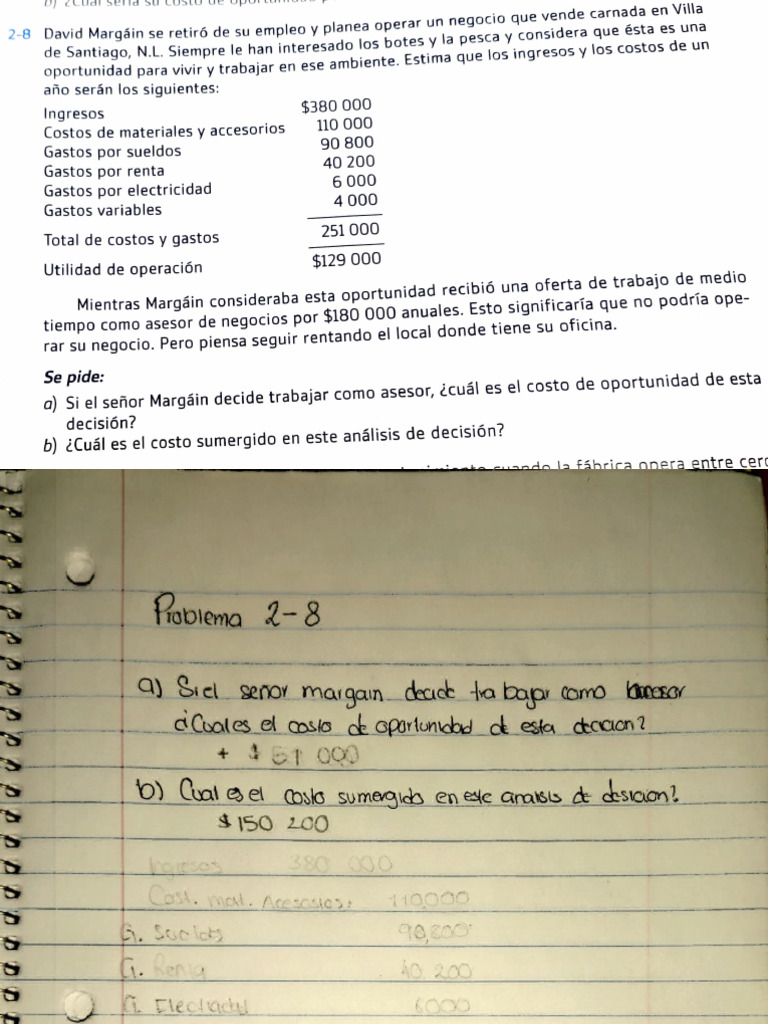 b) ¿Cuál sería su costo de
2-8 David Margáin se retiró de su empleo y planea operar un negocio que vende carnada en Villa
de Santiago, N.L. Siempre le han interesado los botes y la pesca y considera que ésta es una
oportunidad para vivir y trabajar en ese ambiente. Estima que los ingresos y los costos de un
año serán los siguientes:
Ingresos $380 000
Costos de materiales y accesorios 110 000
Gastos por sueldos 90 800
Gastos por renta 40 200
Gastos por electricidad 6 000
Gastos variables 4 000
Total de costos y gastos 251 000
Utilidad de operación $129 000
Mientras Margáin consideraba esta oportunidad recibió una oferta de trabajo de medio
tiempo como asesor de negocios por $180 000 anuales. Esto significaría que no podría ope-
rar su negocio. Pero piensa seguir rentando el local donde tiene su oficina.
Se pide:
a) Si el señor Margáin decide trabajar como asesor, ¿cuál es el costo de oportunidad de esta
decisión?
b) ¿Cuál es el costo sumergido en este análisis de decisión?
cuando la fábrica opera entre cero
Problema 2-8
a) Si el señor margain decide trabajar como
¿Cual es el costo de oportunidad de esta decicion?
+ $ 51 000
b) Cual es el costo sumergido en este analisis de desicion?
$ 150 200
Ingresos 380 000
Cost. mat. Accesorios: 110,000
G. Sueldos 90,800
G. Renta 40 200
G. Electricidad 6000